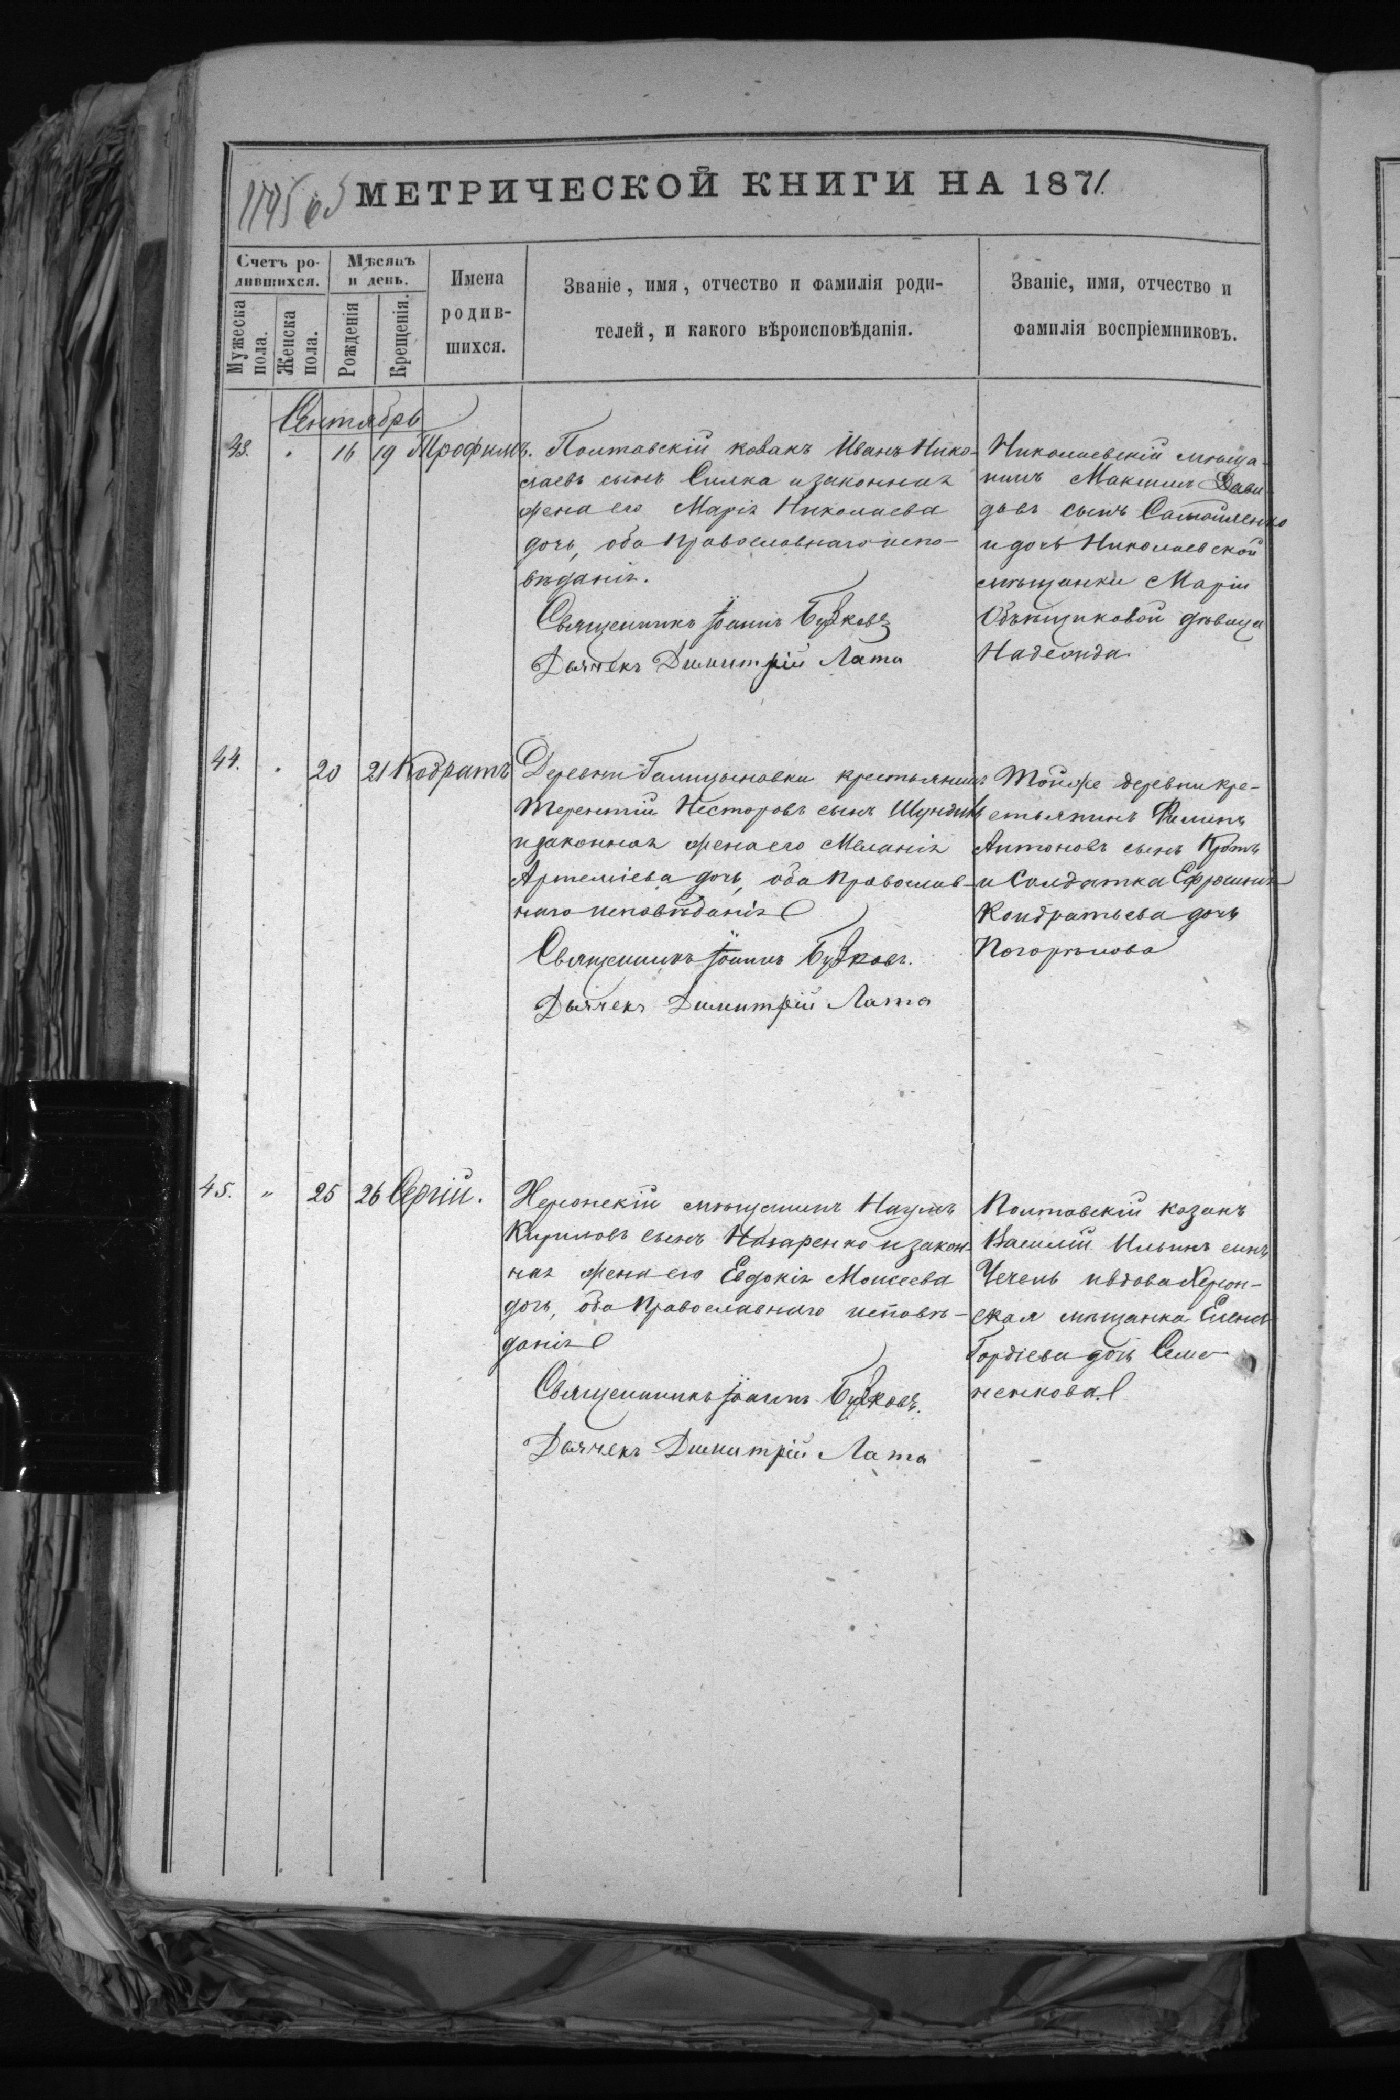 МЕТРИЧЕСКОЙ КНИГИ НА 1871.
Счетъ ро-
дившихся.
Мужеска
пола.
Женска
пола.
Мѣсяцъ
и день.
Рожденія
Крещенія.
Имена
родив-
шихся.
Званіе, имя, отчество и фамилія роди-
телей, и какого вѣроисповѣданія.
Званіе, имя, отчество и
фамилія воспріемниковъ.
Сентябрь
43. 16 19 Трофимъ.
Полтавскій козакъ Иванъ Нико-
лаевъ сынъ Силка и законная
жена его Марія Николаева
дочь, оба православнаго испо-
вѣданія.
Священникъ Іоаннъ
Дьячекъ Димитрій Лата
Николаевскій мѣща-
нинъ Максимъ Дави-
довъ сынъ Самойленко
и дочь Николаевской
мѣщанки Маріи
Объѣщиковой дѣвица
Надежда
44. 20 21 Кодратъ
Деревни Галицыновки крестьянинъ
Терентій Несторовъ сынъ
и законная жена его Меланія
Артеміева дочь, оба православ-
наго исповѣданія
Священникъ Іоаннъ
Дьячекъ Димитрій Лата
Тойже деревни кре-
стьянинъ Филипъ
Антоновъ сынъ Кротъ
и солдатка Ефросинія
Кондратьева дочь
Погорѣлова
45. " 25 26 Сергій.
Херсонскій мѣщанинъ Наумъ
Кириловъ сынъ Назаренко и закон-
ная жена его Евдокія Моисеева
дочь, оба православнаго исповѣ-
данія
Священникъ Іоаннъ
Дьячекъ Димитрій Лата
Полтавскій козакъ
Василій Ильинъ сынъ
Чечель и вдова Херсон-
ская мѣщанка Елена
Гордіева дочь Семе-
ненкова.